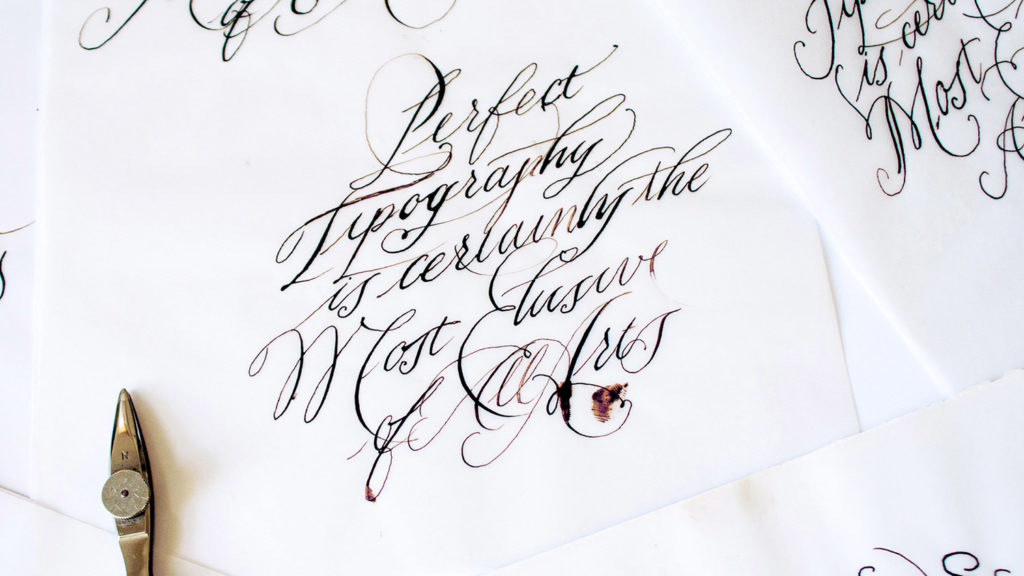 of
Perfect
Typography
is certainly the
Most Elusive
of All Arts
Typ
is cer
Most
N